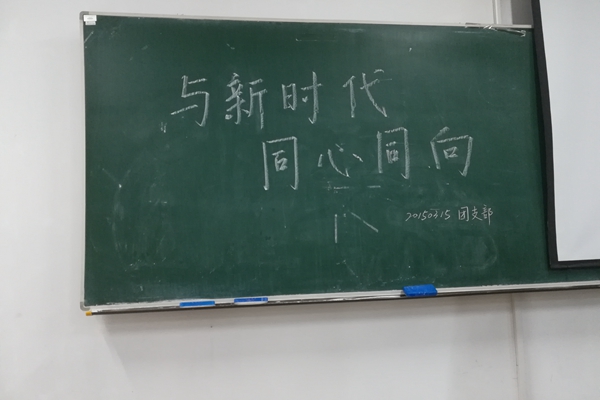 与新时代
同心同向
20150315 团支部